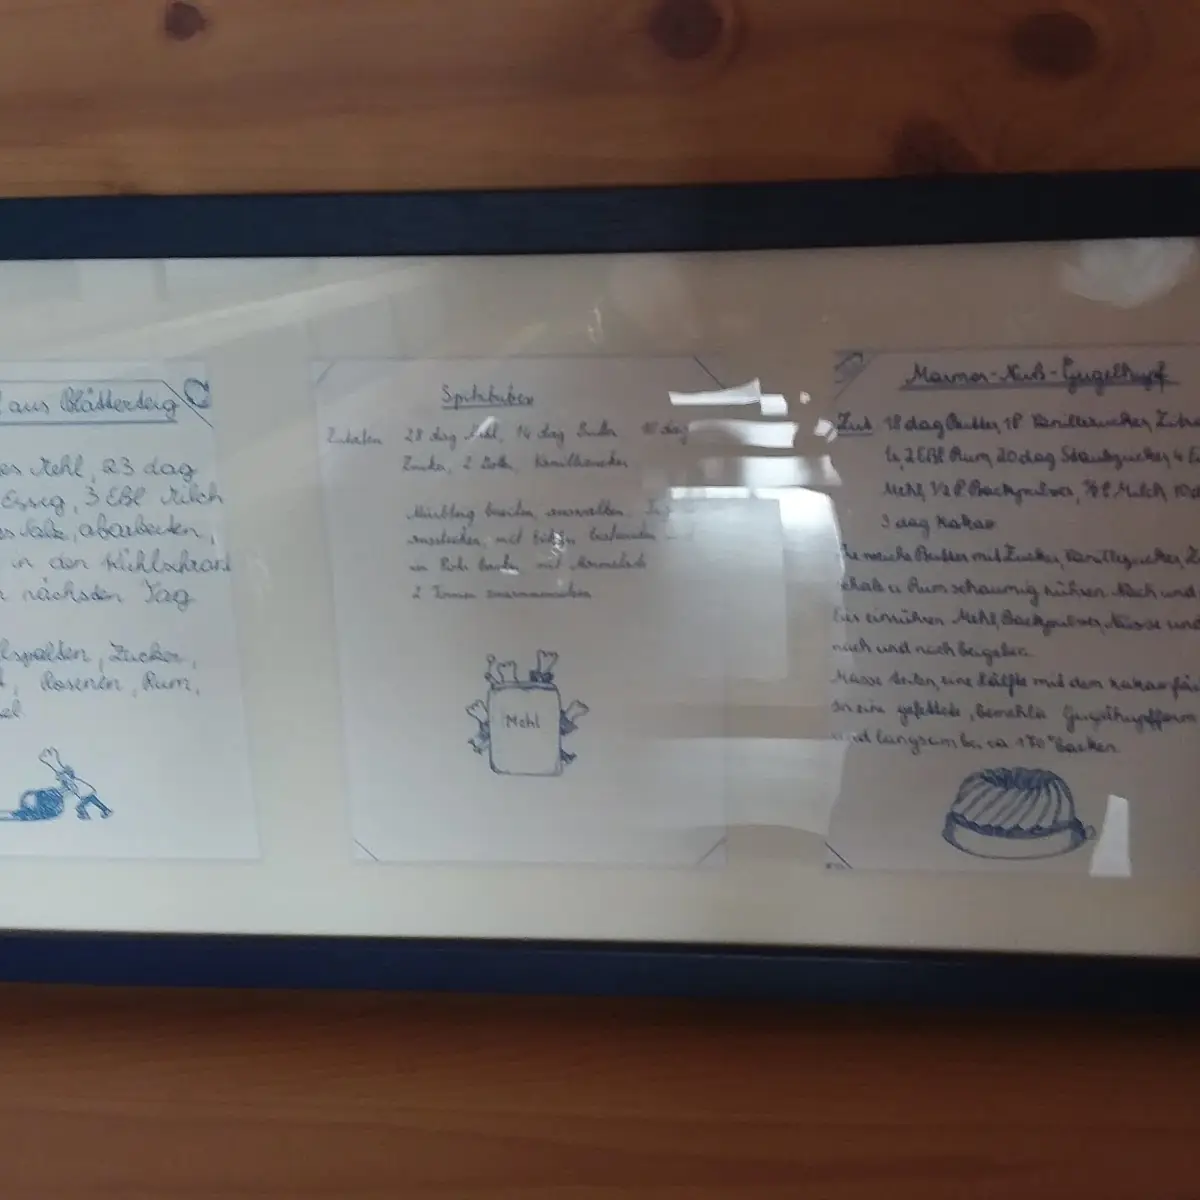 aus Blätterteig
Mehl, 23 dag
Essig, 3 Eßl Milch
Salz, abarbeiten,
in den Kühlschrank
nächsten Tag
lspalten, Zucker,
Rosenen, Rum,
Spitzbuben
Zutaten 28 dag Mehl, 14 dag Butter 10 dag
Zucker, 2 Dotter, Vanillezucker
Mürbteig bereiten, auswalken
ausstechen, mit
im Rohr backen, mit Marmelade
2 Formen zusammenkleben
Mehl
Marmor-Nuß-Gugelhupf
Zut 18 dag Butter, 1P. Vanillezucker, Zitro
2 Eßl Rum, 20 dag Staubzucker, 4
Mehl, 1/2 P. Backpulver, Milch,
3 dag Kakao
weiche Butter mit Zucker, Vanillezucker,
schale u. Rum schaumig rühren. Nach und
einrühren. Mehl, Backpulver, Nüsse und
nach und nach beigeben.
Masse teilen, eine Hälfte mit dem Kakao
in eine gefettete, bemehlte Gugelhupfform
und langsam bei ca 170° backen.